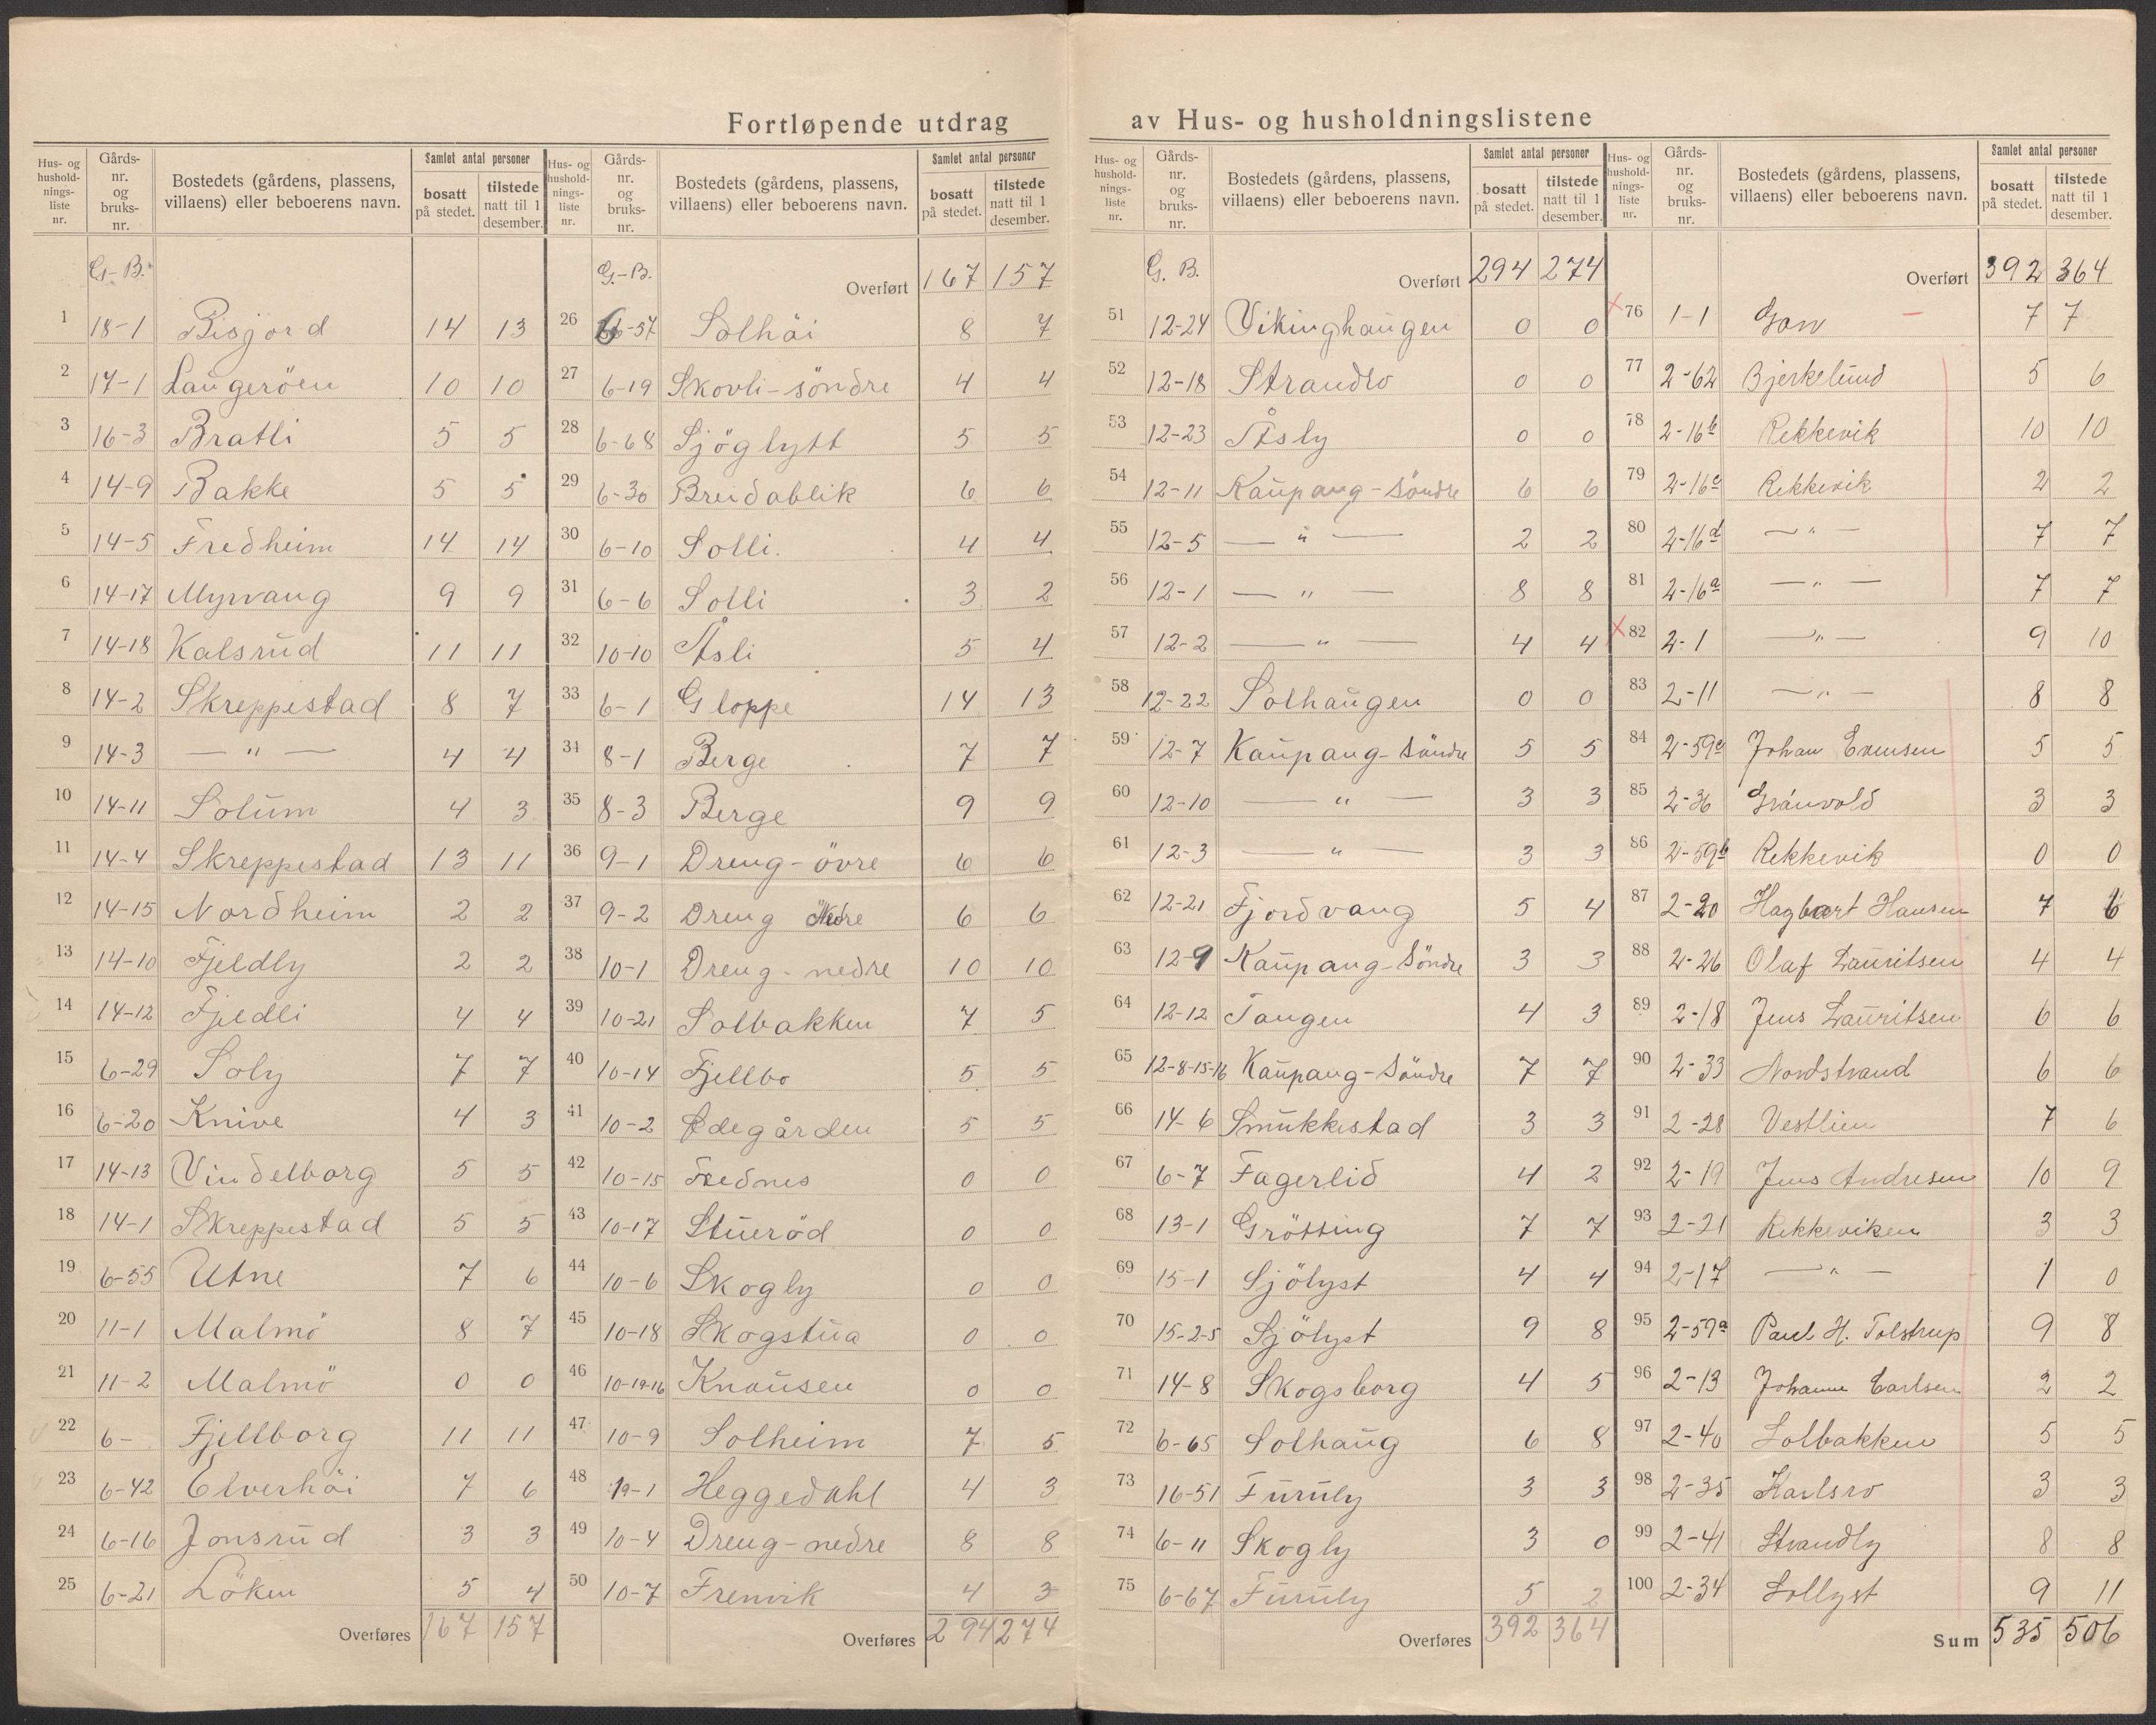 Fortløpende utdrag av Hus- og husholdningslistene
Hus- og husholdnings-liste nr. | Gårds-nr. og bruks-nr. | Bostedets (gårdens, plassens, villaens) eller beboerens navn. | Samlet antal personer | bosatt på stedet. | tilstede natt til 1 desember.
G-B.
1 18-1 Bisjord 14 13
2 17-1 Laugeröen 10 10
3 16-3 Bratli 5 5
4 14-9 Bakke 5 5
5 14-5 Fredheim 14 14
6 14-17 Myrvang 9 9
7 14-18 Kalsrud 11 11
8 14-2 Skreppestad 8 7
9 14-3 — " — 4 4
10 14-11 Solum 4 3
11 14-4 Skreppestad 13 11
12 14-15 Nordheim 2 2
13 14-10 Fjeldly 2 2
14 14-12 Fjeldli 4 4
15 6-29 Soly 7 7
16 6-20 Knive 4 3
17 14-13 Vindelborg 5 5
18 14-1 Skreppestad 5 5
19 6-55 Utne 7 6
20 11-1 Malmö 8 7
21 11-2 Malmö 0 0
22 6- Fjellborg 11 11
23 6-42 Elverhöi 7 6
24 6-16 Jonsrud 3 3
25 6-21 Löken 5 4
Overføres 167 157
Hus- og husholdnings-liste nr. | Gårds-nr. og bruks-nr. | Bostedets (gårdens, plassens, villaens) eller beboerens navn. | Samlet antal personer | bosatt på stedet. | tilstede natt til 1 desember.
G-B. Overført 167 157
26 6-57 Solhöi 8 7
27 6-19 Skovli-söndre 4 4
28 6-68 Sjöglytt 5 5
29 6-30 Breidablik 6 6
30 6-10 Solli. 4 4
31 6-6 Solli 3 2
32 10-10 Åsli 5 4
33 6-1 Gloppe 14 13
34 8-1 Berge 7 7
35 8-3 Berge 9 9
36 9-1 Dreng-övre 6 6
37 9-2 Dreng Nedre 6 6
38 10-1 Dreng-nedre 10 10
39 10-21 Solbakken 7 5
40 10-14 Fjellbo 5 5
41 10-2 Ødegården 5 5
42 10-15 Frednes 0 0
43 10-17 Stueröd 0 0
44 10-6 Skogly 0 0
45 10-18 Skogstua 0 0
46 10-19-16 Knausen 0 0
47 10-9 Solheim 7 5
48 19-1 Heggedahl 4 3
49 10-4 Dreng-nedre 8 8
50 10-7 Frenvik 4 3
Overføres 294 274
Hus- og husholdnings-liste nr. | Gårds-nr. og bruks-nr. | Bostedets (gårdens, plassens, villaens) eller beboerens navn. | Samlet antal personer | bosatt på stedet. | tilstede natt til 1 desember.
G. B. Overført 294 274
51 12-24 Vikinghaugen 0 0
52 12-18 Strandro 0 0
53 12-23 Åsly 0 0
54 12-11 Kaupang-Söndre 6 6
55 12-5 — " — 2 2
56 12-1 — " — 8 8
57 12-2 — " — 4 4
58 12-22 Solhaugen 0 0
59 12-7 Kaupang-Söndre 5 5
60 12-10 — " — 3 3
61 12-3 — " — 3 3
62 12-21 Fjordvang 5 4
63 12-9 Kaupang-Söndre 3 3
64 12-12 Tangen 4 3
65 12-8-15-16 Kaupang-Söndre 7 7
66 14-6 Smukkestad 3 3
67 6-7 Fagerlid 4 2
68 13-1 Grötting 7 7
69 15-1 Sjölyst 4 4
70 15-2-5 Sjölyst 9 8
71 14-8 Skogsborg 4 5
72 6-65 Solhaug 6 8
73 16-51 Furuly 3 3
74 6-11 Skogly 3 0
75 6-67 Furuly 5 2
Overføres 392 364
Hus- og husholdnings-liste nr. | Gårds-nr. og bruks-nr. | Bostedets (gårdens, plassens, villaens) eller beboerens navn. | Samlet antal personer | bosatt på stedet. | tilstede natt til 1 desember.
Overført 392 364
× 76 1-1 Gon — 7 7
77 2-62 Bjerkelund 5 6
78 2-16b Rekkevik 10 10
79 2-16c Rekkevik 2 2
80 2-16d — " — 7 7
81 2-16a — " — 7 7
× 82 2-1 — " — 9 10
83 2-11 — " — 8 8
84 2-59c Johan Evensen 5 5
85 2-36 Grönvold 3 3
86 2-59b Rekkevik 0 0
87 2-20 Hagbart Hansen 7 6
88 2-26 Olaf Lauritsen 4 4
89 2-18 Jens Lauritsen 6 6
90 2-33 Nordstrand 6 6
91 2-28 Vestlien 7 6
92 2-19 Jens Andresen 10 9
93 2-21 Rekkeviken 3 3
94 2-17 — " — 1 0
95 2-59a Paul H. Tolstrup 9 8
96 2-13 Johanne Carlsen 2 2
97 2-40 Solbakken 5 5
98 2-35 Karlsro 3 3
99 2-41 Strandly 8 8
100 2-34 Sollyst 9 11
Sum 535 506